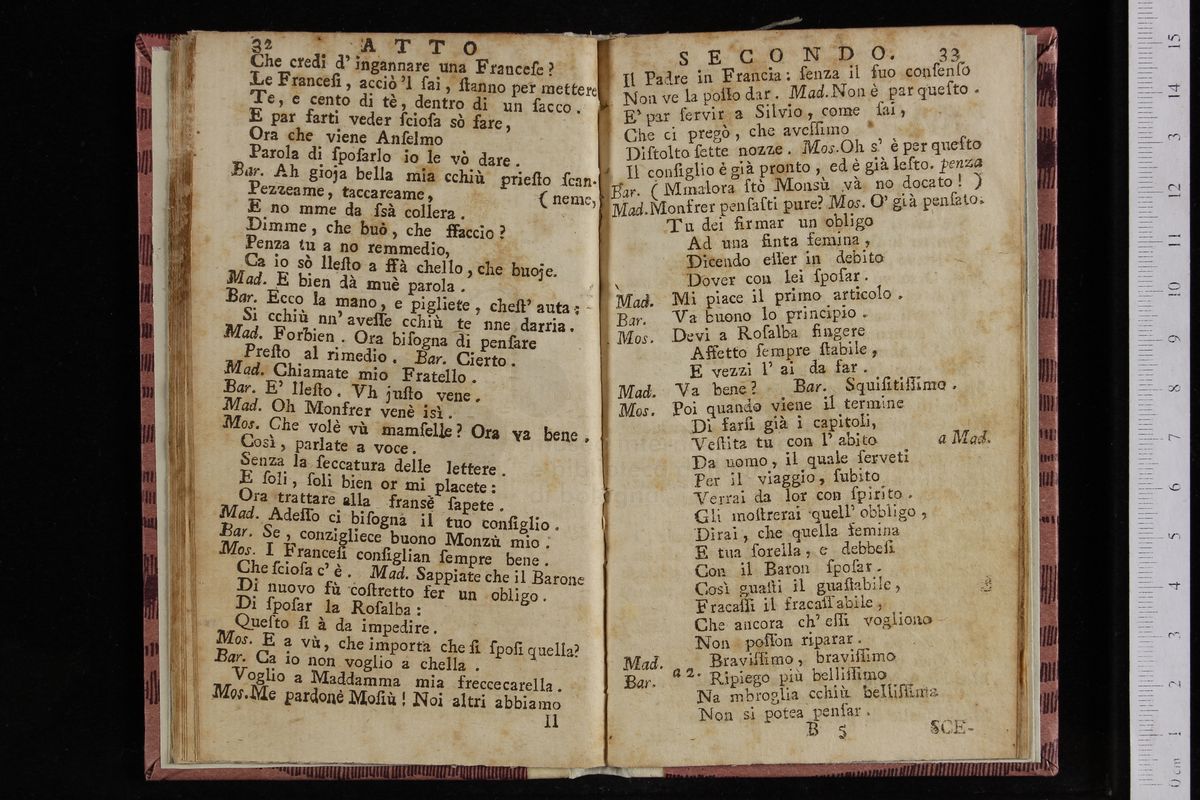 32 ATTO
Che credi d' ingannare una Franceſe?
Le Franceſi, acciò 'l ſai, ſtanno per mettere
Te, e cento di tè, dentro di un ſacco.
E par farti veder ſcioſa sò fare,
Ora che viene Anſelmo
Parola di ſpoſarlo io le vò dare.
Bar. Ah gioja bella mia cchiù prieſto ſcan-
Pezzeame, taccareame, ( neme,
E no mme da ſsà collera.
Dimme, che buò, che ffaccio?
Penza tu a no remmedio,
Ca io sò lleſto a ffà chello, che buoje.
Mad. E bien dà muè parola.
Bar. Ecco la mano, e pigliete, cheſt' auta;
Si cchiù nn' aveſſe cchiù te nne darria.
Mad. Forbien. Ora biſogna di penſare
Preſto al rimedio. Bar. Cierto.
Mad. Chiamate mio Fratello.
Bar. E' lleſto. Vh juſto vene.
Mad. Oh Monfrer venè isì.
Mos. Che volè vù mamſelle? Ora va bene.
Così, parlate a voce.
Senza la ſeccatura delle lettere.
E ſoli, ſoli bien or mi placete:
Ora trattare alla fransè ſapete.
Mad. Adeſſo ci biſogna il tuo conſiglio.
Bar. Se, conzigliece buono Monzù mio.
Mos. I Franceſi conſiglian ſempre bene.
Che ſcioſa c' è. Mad. Sappiate che il Barone
Di nuovo fù coſtretto fer un obligo.
Di ſpoſar la Roſalba:
Queſto ſi à da impedire.
Mos. E a vù, che importa che ſi ſpoſi quella?
Bar. Ca io non voglio a chella.
Voglio a Maddamma mia freccecarella.
Mos. Me pardonè Moſiù! Noi altri abbiamo
Il
SECONDO. 33
Il Padre in Francia: ſenza il ſuo conſenſo
Non ve la poſſo dar. Mad. Non è par queſto.
E' par ſervir a Silvio, come ſai,
Che ci pregò, che aveſſimo
Diſtolto ſette nozze. Mos. Oh s' è per queſto
Il conſiglio è già pronto, ed è già leſto. penza
Bar. ( Mmalora ſtò Monsù và no docato! )
Mad. Monfrer penſaſti pure? Mos. O' già penſato.
Tu dei firmar un obligo
Ad una finta femina,
Dicendo eſſer in debito
Dover con lei ſpoſar.
Mad. Mi piace il primo articolo.
Bar. Va buono lo principio.
Mos. Devi a Roſalba fingere
Affetto ſempre ſtabile,
E vezzi l' ai da far.
Mad. Va bene? Bar. Squiſitiſſimo.
Mos. Poi quando viene il termine
Di farſi già i capitoli,
Veſtita tu con l' abito a Mad.
Da uomo, il quale ſerveti
Per il viaggio, ſubito
Verrai da lor con ſpirito.
Gli moſtrerai quell' obbligo,
Dirai, che quella femina
E tua ſorella, e debbeſi
Con il Baron ſpoſar.
Così guaſti il guaſtabile,
Fracaſſi il fracaſſabile,
Che ancora ch' eſſi vogliono
Non poſſon riparar.
Mad. Braviſſimo, braviſſimo
Bar. a 2. Ripiego più belliſſimo
Na mbroglia cchiù belliſſima
Non si potea penſar.
B 5 SCE-